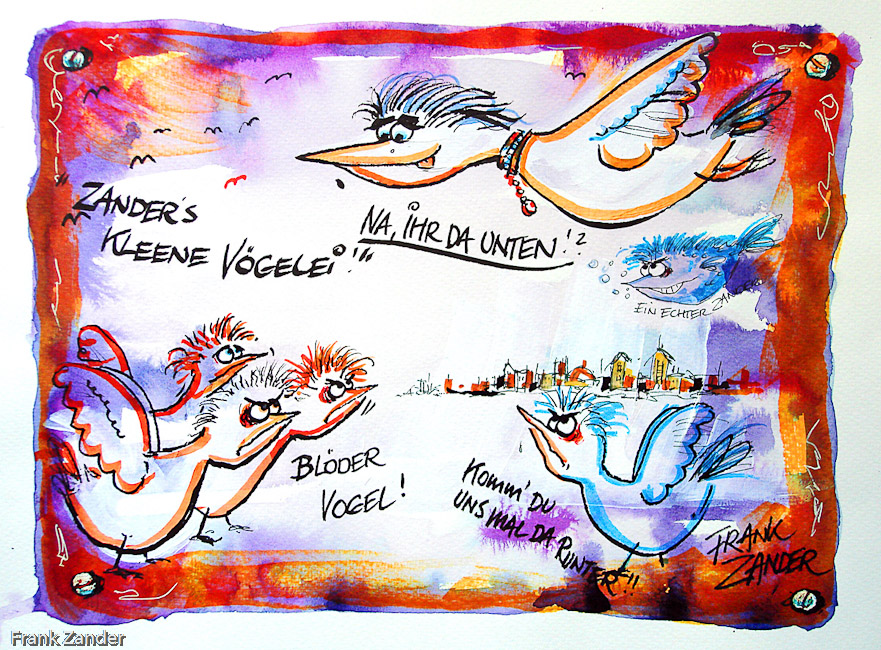 ZANDER'S
KLEENE VÖGELEI!"
NA, IHR DA UNTEN!?
EIN ECHTER ZANDER
BLÖDER
VOGEL!
KOMM' DU
UNS MAL DA
RUNTER!!
FRANK
ZANDER
Frank Zander